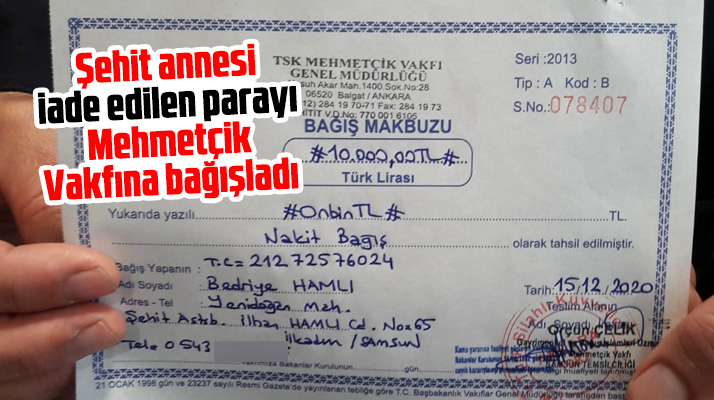 Şehit annesi
iade edilen parayı
Mehmetçik
Vakfına bağışladı
TSK MEHMETÇİK VAKFI
GENEL MÜDÜRLÜĞÜ
suh Akar Mah.1400.Sok.No:28
06520 Balgat / ANKARA
12) 284 19 70-71 Fax: 284 19 73
HİTİT V.D.No: 770 001 6105
Seri :2013
Tip : A Kod : B
S.No.:078407
BAĞIŞ MAKBUZU
#10.000,00TL#
Türk Lirası
Yukarıda yazılı #OnbinTL# TL.
Nakit Bağış olarak tahsil edilmiştir.
Bağış Yapanın : T.C= 21272576024
Adı Soyadı : Bedriye HAMLI
Tarih: 15.12./2020
Adres - Tel : Yenidoğan Mah.
Teslim Alanın
Şehit Astsb. İlhan HAMLI Cd. No=65
Adı Soyadı
Orçun ÇELİK
Tele 0 543
İlkadım / SAMSUN
Mehmetçik Vakfı
SAMSUN TEMSİLCİLİĞİ
21 OCAK 1998 gün ve 23237 sayılı Resmi Gazete'de yayımlanan tebliğe göre T.C. Başbakanlık Vakıflar Genel Müdürlüğü